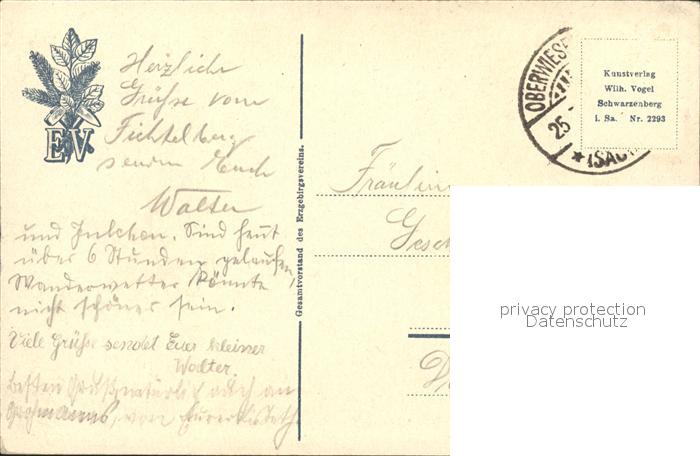 EV
Herzliche
Grüße vom
Fichtelberg
senden Euch
Walter
und Julchen. Sind heut
über 6 Stunden gelaufen,
Wanderwetter könnte
nicht schöner sein.
Viele Grüße sendet Euer kleiner
Walter.
besten Gruß natürlich auch an
Grohmanns, von Eurer
Gesamtvorstand des Erzgebirgsvereins.
OBERWIESE
25.
* (SACH
Kunstverlag
Wilh. Vogel
Schwarzenberg
i. Sa. Nr. 2293
Fräulein
Gesch
privacy protection
Datenschutz